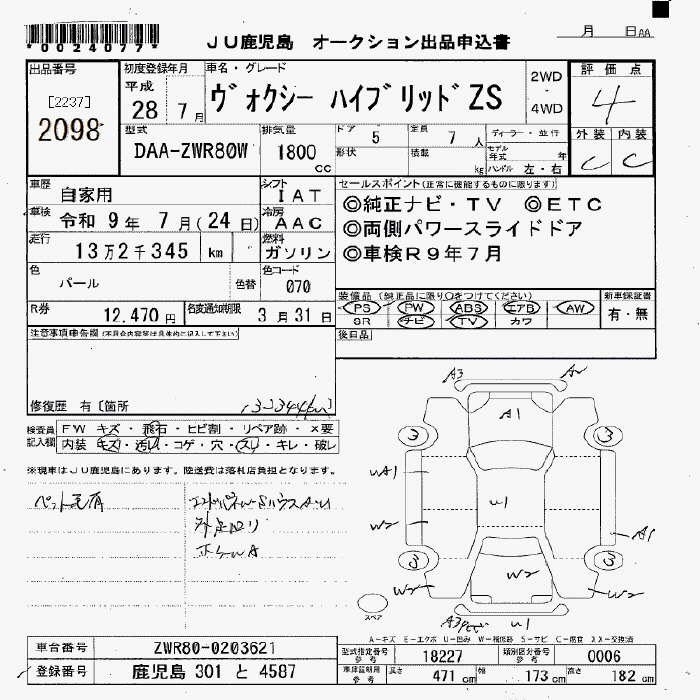 *0024077*
JU鹿児島 オークション出品申込書
月 日 AA
出品番号
[2237]
2098
初度登録年月
平成
28 7月
車名・グレード
ヴォクシー ハイブリッドZS
2WD
・
4WD
評価点
4
外装 内装
C C
型式
DAA-ZWR80W
排気量
1800
cc
ドア 5
定員 7人
形状
積載 kg
ディーラー・並行
モデル年式 年
ハンドル 左・右
車歴 自家用
シフト IAT
車検 令和 9年 7月(24日)
冷房 AAC
走行 13万2千345 km
燃料 ガソリン
色 パール 色替
色コード 070
R券 12.470円
名変通知期限 3月31日
セールスポイント(正常に機能するものに限ります)
◎純正ナビ・TV ◎ETC
◎両側パワースライドドア
◎車検R9年7月
装備品(純正品に限り○をつけてください)
PS PW ABS エアB AW
SR ナビ TV カワ
新車保証書
有・無
後日品
注意事項申告欄(不具合内容等は具体的に記入して下さい)
修復歴 有〔箇所 〕
132344km
検査員記入欄
FW キズ・飛石・ヒビ割・リペア跡・×要
内装 キズ・汚れ・コゲ・穴・スリ・キレ・破レ
※現車はJU鹿児島にあります。陸送費は落札店負担となります。
ペット毛有
A3
A1
3 3
uA1
u1
W2
A1
3 3
W2
W2
W2
スペア
u1
A-キズ E-エクボ U-凹み W-補修跡 S-サビ C-腐食 XX-交換済
車台番号 ZWR80-0203621
登録番号 鹿児島 301 と 4587
型式指定番号参考 18227
類別区分番号参考 0006
車庫証明用参考 長さ 471cm 幅 173cm 高さ 182cm